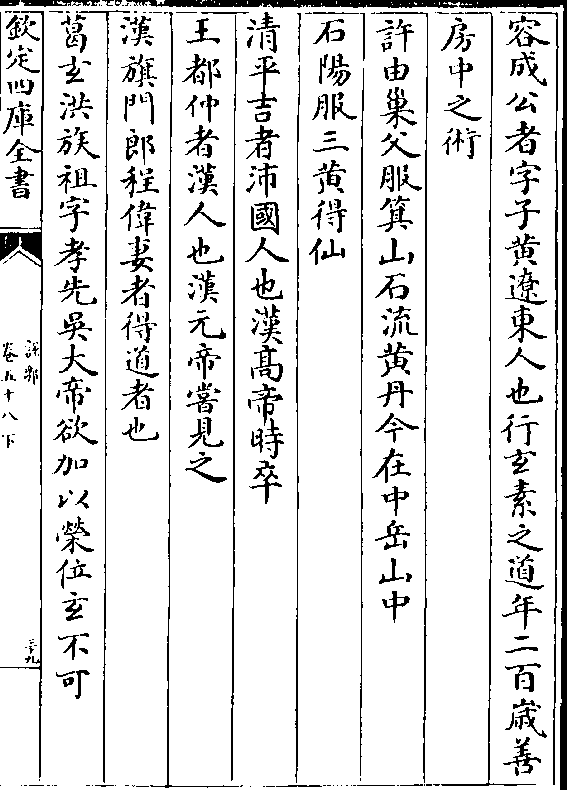 容成公者字子黄遼東人也行玄素之道年二百歲善
房中之術
許由巢父服箕山石流黄丹今在中岳山中
石陽服三黄得仙
清平吉者沛國人也漢髙帝時卒
王都仲者漢人也漢元帝嘗見之
漢旗門郎程偉妻者得道者也
葛玄洪族祖字孝先吳大帝欲加以榮位玄不可
欽定四庫全書
說郛
卷五十八下
三十九